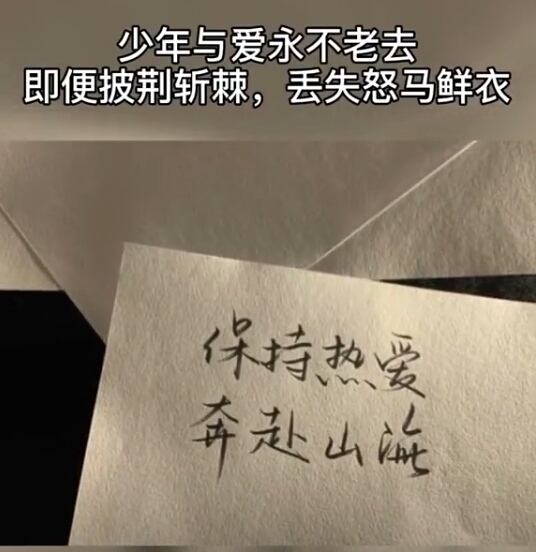 少年与爱永不老去
即便披荆斩棘，丢失怒马鲜衣
保持热爱
奔赴山海